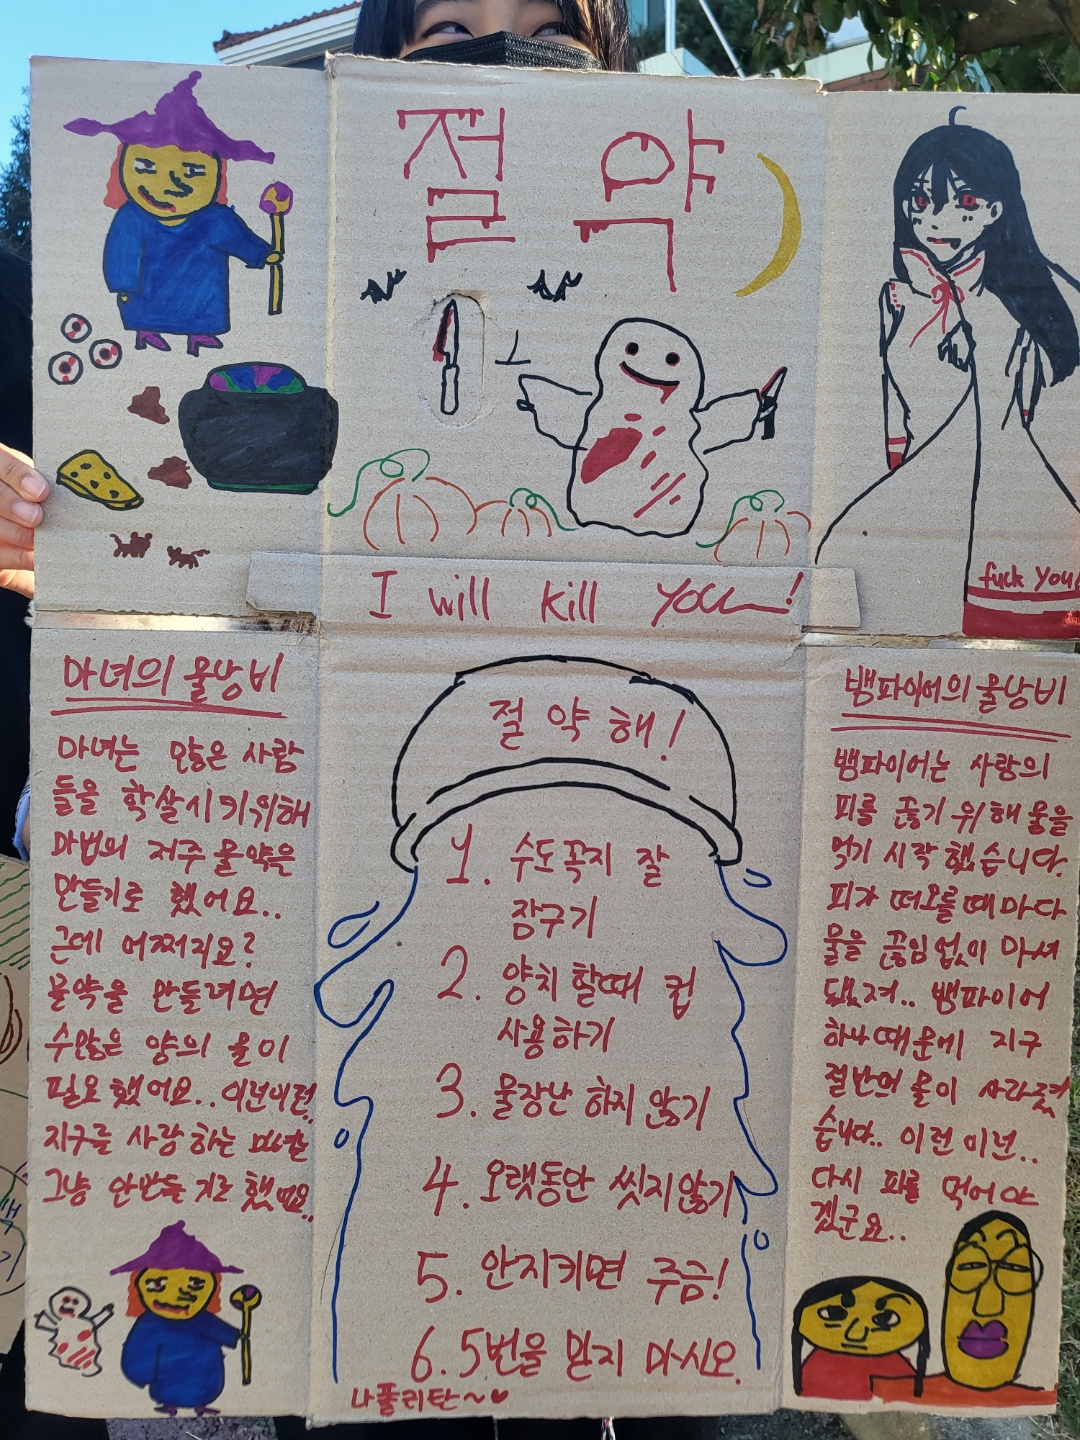 절약
I will kill YOU!
fuck You!
마녀의 물낭비
마녀는 많은 사람
들을 학살시키위해
마법의 저주 물약은
만들기로 했어요..
근데 어쩌지요?
물약을 만들려면
수많은 양의 물이
필요했어요.. 이런이런,
지구를 사랑하는 마녀는
그냥 안만들기로 했때요..
절약해!
1. 수도꼭지 잘
잠구기
2. 양치 할때 컵
사용하기
3. 물장난 하지 않기
4. 오랫동안 씻지않기
5. 안지키면 주금!
6. 5번을 믿지 마시오.
나폴리탄~♥
뱀파이어의 물낭비
뱀파이어는 사람의
피를 끊기 위해 물을
먹기 시작했습니다.
피가 떠오를때마다
물을 끊임없이 마셔
되요져.. 뱀파이어
하나 때문에 지구
절반의 물이 사라졌
습니다.. 이런 이런..
다시 피를 먹어야
겠군요..